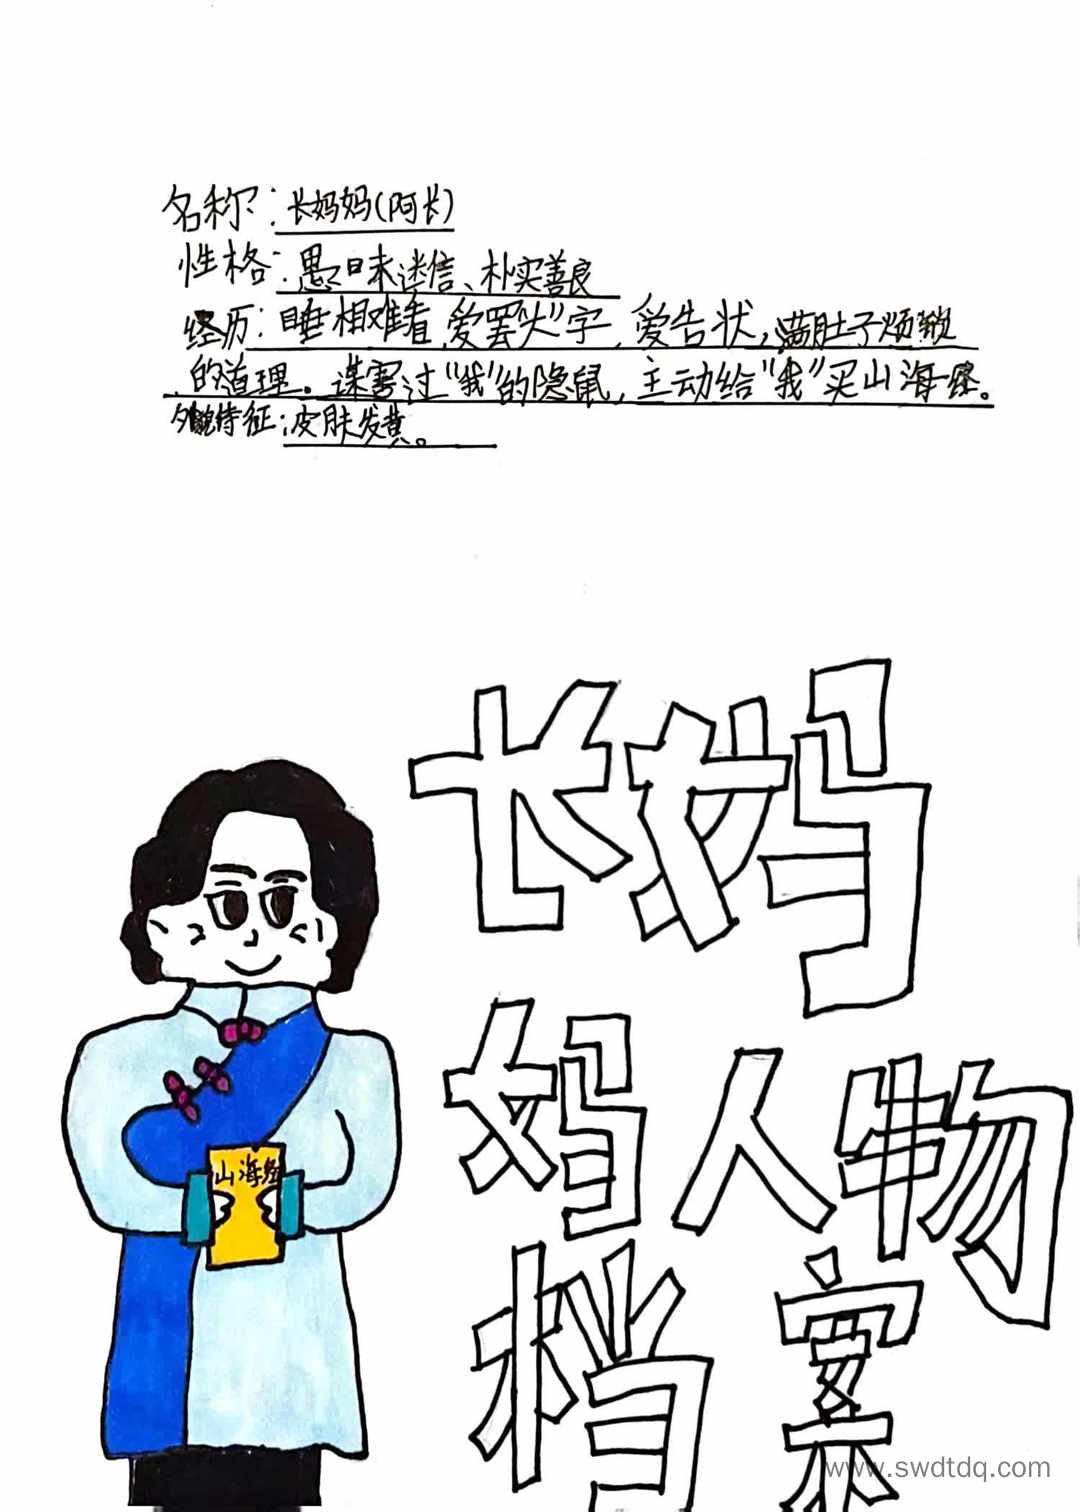 名称：长妈妈（阿长）
性格：愚昧迷信、朴实善良
经历：睡相难看，爱罢“大”字，爱告状，满肚子烦琐
的道理。谋害过“我”的隐鼠，主动给“我”买山海经。
外貌特征：皮肤发黄。
长妈
妈人物
档案
山海经
www.swdtdq.com